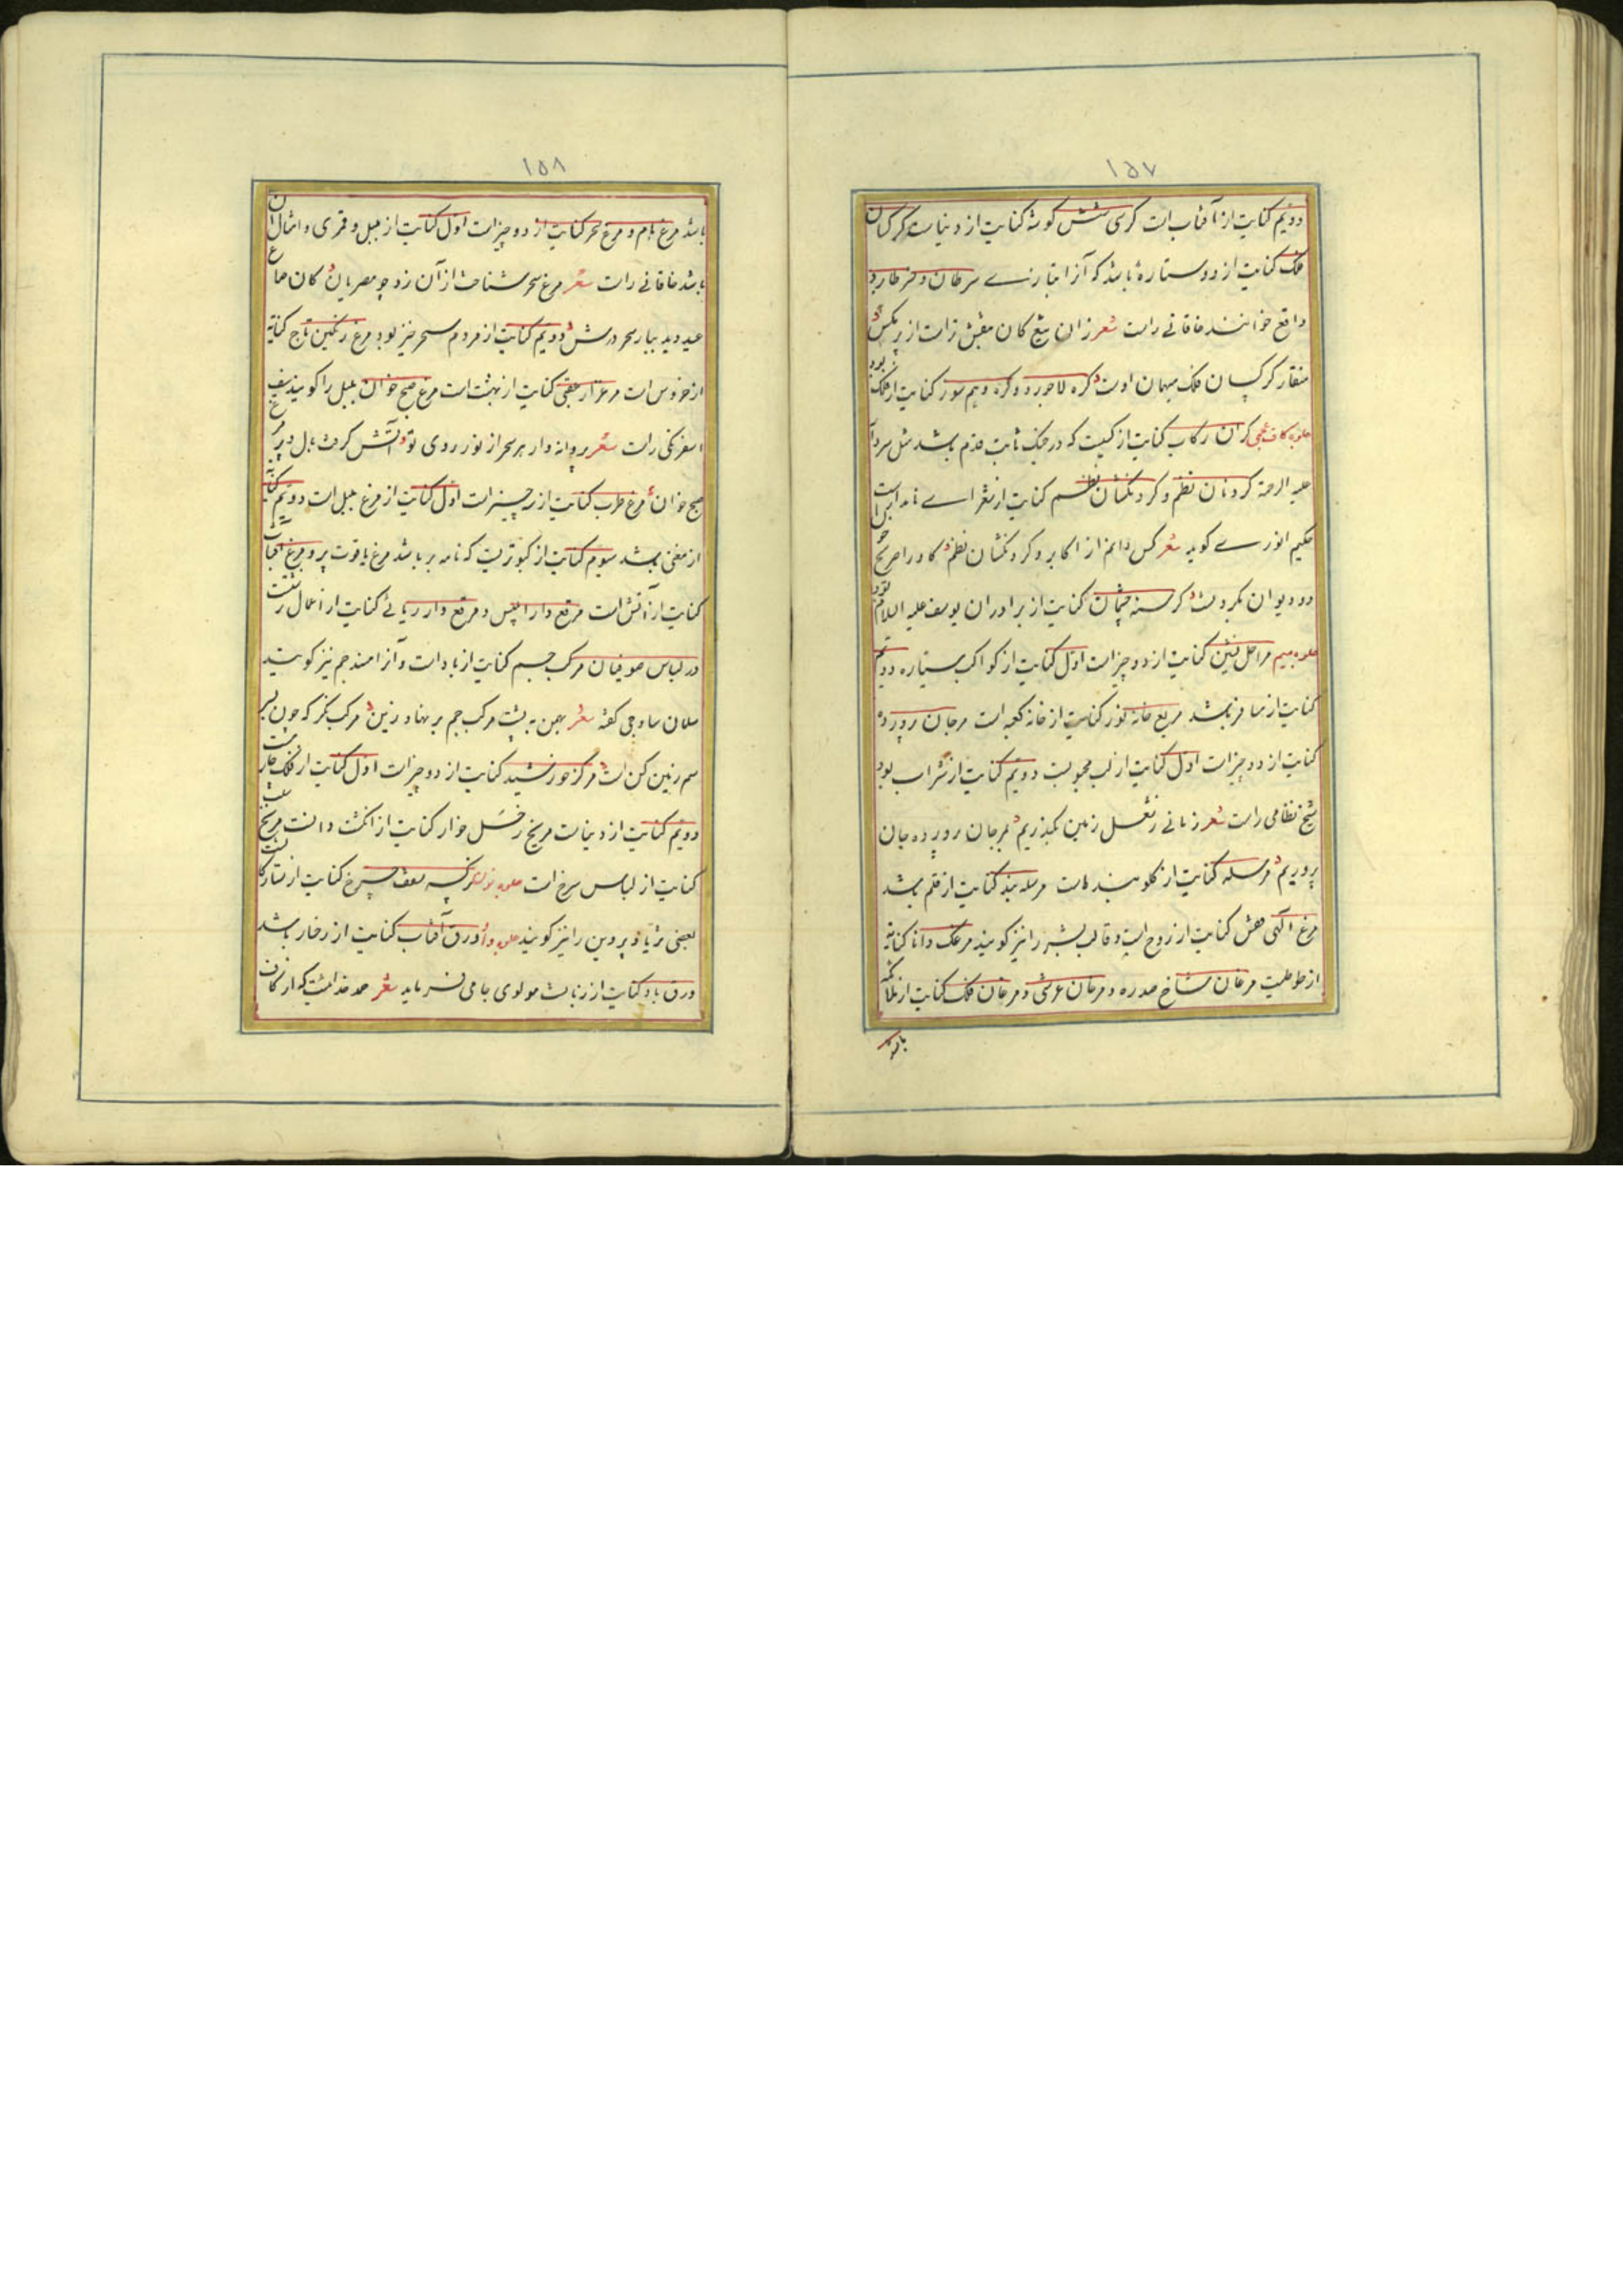 ۱۵۷
دویم کنایت از آفتاب است کرسی شش کوشه کنایت از دنیاست کرکسان
فلک کنایت از دو ستاره باشد که آنرا بتازی نسر طائر و نسر
واقع خوانند خاقانی راست شعر زان تیغ کان بنفش تر است از پر مکس
منقار کرکسان فلک میهمان اوست کره لاجورد و کره دهم سوز کنایت از فلک بود
جلوه کاف عجمی کران رکاب کنایت از کسیت که در جنک ثابت قدم باشد مثل
علیه الرحمة کردنان نظم و کردنکشان نظم کنایت از شعرا
حکیم انوری کوید شعر کس دانم از اکابر و کردنکشان نظم کاو را صریح
دو دیوان بکردنست کرسنه چشمان کنایت از برادران یوسف علیه السلام
جلوه میم مراحل نشین کنایت از دو چیز است اول کنایت از کواکب سیاره دویم
کنایت از مسافر باشد مربع خانه نور کنایت از خانه کعبه است مرجان پرورده
کنایت از دو چیز است اول کنایت از لب محبوبست دویم کنایت از شراب بود
شیخ نظامی راست شعر زمانی ز شغل زمین بکذریم بمرجان پرورده جان
پروریم مرسله کنایت از کلوبند است مرسله بند کنایت از قلم باشد
مرغ آکهی کنایت از روح است و قالب بشر را نیز کویند مرغک دانا کنایة
از طوطیست مرغان شاخ سدره و مرغان عرشی و مرغان فلک کنایت از ملائکه
باشد
۱۵۸
باشد مرغ بام و مرغ سحر کنایت از دو چیز است اول کنایت از بلبل و قمری و امثال آن
باشد خاقانی راست شعر مرغ سحر شناعت از آن زد چو مصریان کان صاع
عید دید ببار سحر درش دویم کنایت از مردم سحر خیز بود مرغ رنکین تاج کنایة
از خروس است مرغزار عقبی کنایت از بهشت است مرغ صبح خوان بلبل را کویند سیف
اسفرنکی راست شعر پروانه وار هر سحر از نور روی تو آتش کرفت بال و پر مرغ
صبح خوان مرغ طرب کنایت از سه چیز است اول کنایت از مرغ بلبل است دویم کنایت
از مغنی باشد سیوم کنایت از کبوتریست که نامه بر باشد مرغ یاقوت پر و مرغ
کنایت از آتش است مرقع دار ابلیس و مرقع دار ریائی کنایت از اعمال زشت
در لباس صوفیان مرکب جسم کنایت از باد است و آنرا مسند جم نیز کویند
سلمان ساوجی کفته شعر بهمن به پشت مرکب جم بر نهاد زین مرکب نکر که چون
سم زمین کن است مرکز خورشید کنایت از دو چیز است اول کنایت از فلک چارمست
دویم کنایت از دنیاست مریخ زحل خوار کنایت از انکشت و آتش است مریخ سلب
کنایت از لباس سرخ است جلوه نون نرکسه سقف چرخ کنایت از ستارکانست
بعضی ثریا و پروین را نیز کویند جلوه واو ورق آفتاب کنایت از رخسار باشد
ورق باد کنایت از زبانست مولوی جامی فرماید شعر حمد خداییست که از کاف